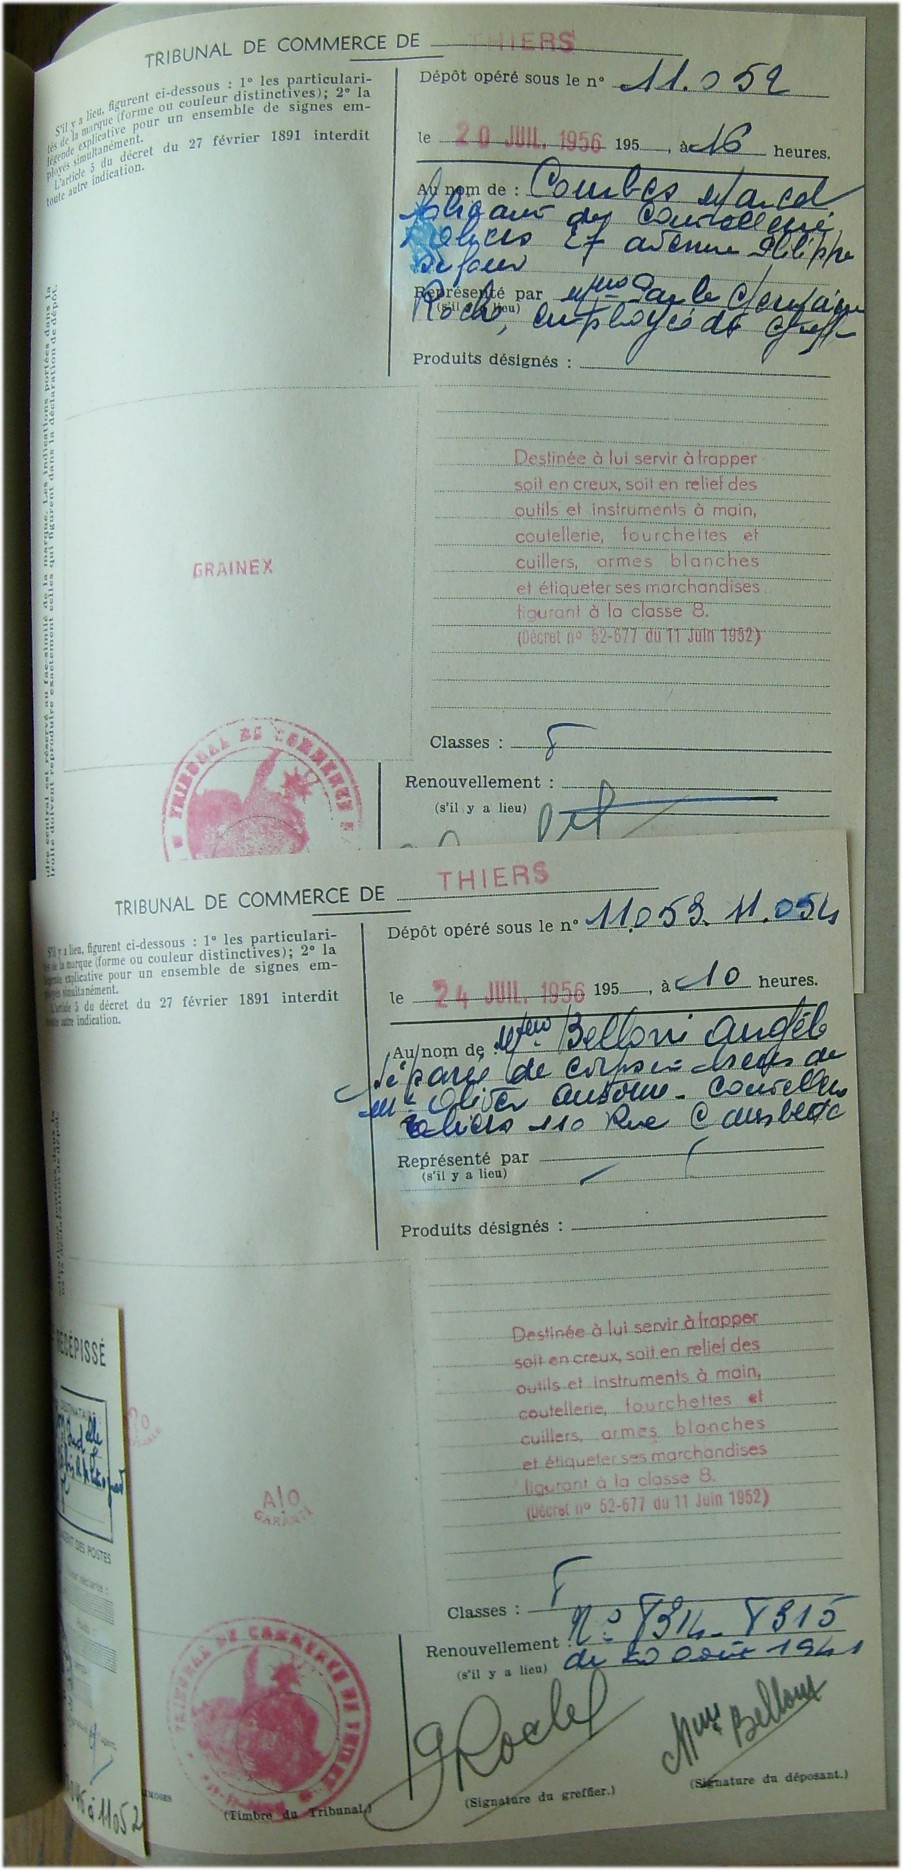 TRIBUNAL DE COMMERCE DE THIERS
S'il y a lieu, figurent ci-dessous : 1º les particulari-
tés de la marque (forme ou couleur distinctives); 2º la
légende explicative pour un ensemble de signes em-
ployés simultanément.
L'article 5 du décret du 27 février 1891 interdit
toute autre indication.
Dépôt opéré sous le nº 11.052
le 20 JUIL. 1956 195 , à 16 heures.
Au nom de : Combes Marcel
fabricant de Coutellerie
27 avenue Philippe
Représenté par Mme
(s'il y a lieu)
Roche, employée de Greffe
Produits désignés :
cadre central est réservé au fac-similé de la marque. Les indications portées dans la
droite doivent reproduire exactement celles qui figurent dans la déclaration de dépôt.
GRAINEX
Destinée à lui servir à frapper
soit en creux, soit en relief des
outils et instruments à main,
coutellerie, fourchettes et
cuillers, armes blanches
et étiqueter ses marchandises
figurant à la classe 8.
(Décret nº 52-677 du 11 Juin 1952)
Classes : 8
Renouvellement :
(s'il y a lieu)
TRIBUNAL DE COMMERCE
TRIBUNAL DE COMMERCE DE THIERS
S'il y a lieu, figurent ci-dessous : 1º les particulari-
tés de la marque (forme ou couleur distinctives); 2º la
légende explicative pour un ensemble de signes em-
ployés simultanément.
L'article 5 du décret du 27 février 1891 interdit
toute autre indication.
Dépôt opéré sous le nº 11.053. 11.054
le 24 JUIL. 1956 195 , à 10 heures.
Au nom de : Mme Belloni Angèle
séparée de corps et biens de
Mr Olivier Antoine - Coutellerie
110 Rue Gambetta
Représenté par
(s'il y a lieu)
Produits désignés :
RÉCÉPISSÉ
DESTINATAIRE
A!O
GARANTI
Destinée à lui servir à frapper
soit en creux, soit en relief des
outils et instruments à main,
coutellerie, fourchettes et
cuillers, armes blanches
et étiqueter ses marchandises
figurant à la classe 8.
(Décret nº 52-677 du 11 Juin 1952)
Classes : 8
Renouvellement : Nº 8314 - 8315
(s'il y a lieu) du 20 Août 1941
TRIBUNAL DE COMMERCE DE THIERS
Rochef
Mme Belloni
(Timbre du Tribunal.)
(Signature du greffier.)
(Signature du déposant.)
à 11052